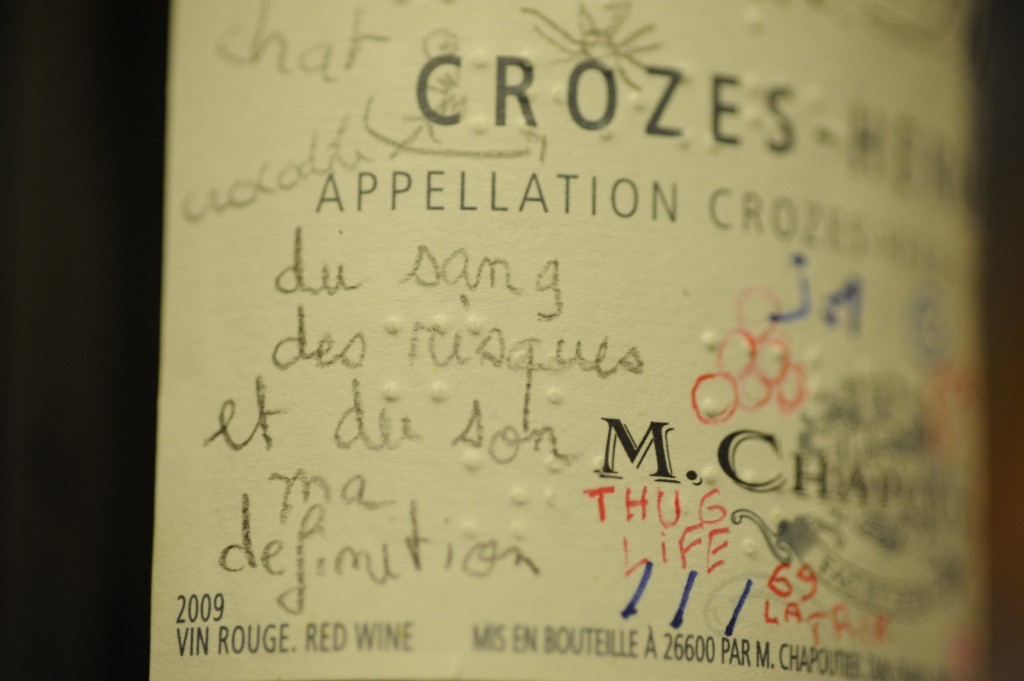 chat
CROZES-HER
APPELLATION CROZES-HE
du sang
des risques
et du son
ma
definition
J.M
M. CHAPOU
THUG
LiFE
69
LA TRIK
2009
VIN ROUGE. RED WINE
MIS EN BOUTEILLE À 26600 PAR M. CHAPOUTIER